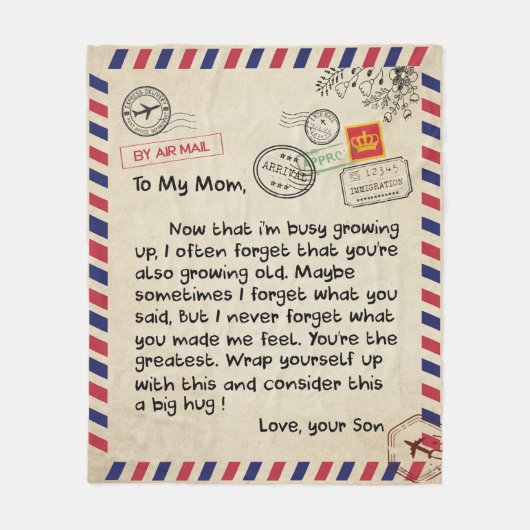 EXPRESS DELIVERY
BY AIR MAIL
ARRIVAL
APPRO
12345
IMMIGRATION
To My Mom,
Now that i'm busy growing
up, I often forget that you're
also growing old. Maybe
sometimes I forget what you
said, But I never forget what
you made me feel. You're the
greatest. Wrap yourself up
with this and consider this
a big hug !
Love, your Son